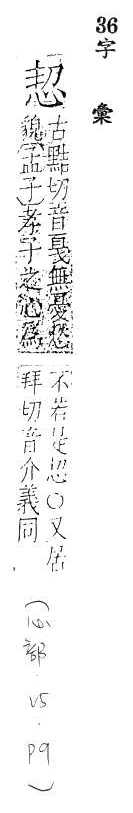 36
字彙
恝
古黠切音戛無憂愁
貌孟子孝子之心爲
不若是恝○又居
拜切音介義同
(心部．V5．P9)